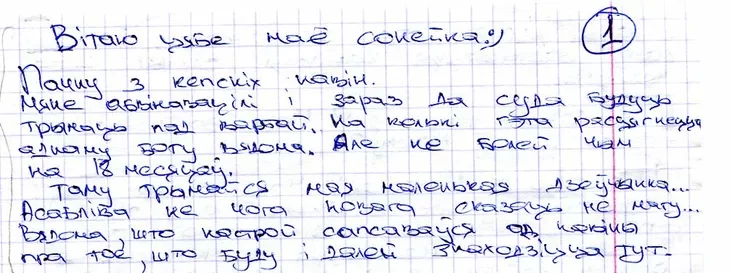 Вітаю цябе маё сонейка:)
1
Пачну з кепскіх навін.
Мяне абвінавацілі і зараз да суда будуць
трымаць пад вартай. На колькі гэта расцягнецца
аднаму богу вядома. Але не болей чым
на 18 месяцаў.
Таму трымайся мая маленькая дзеўчынка...
Асабліва не чога новага сказаць не магу...
Вядома, што настрой сапсаваўся ад навіны
пра тое, што буду і далей знаходзіцца тут.